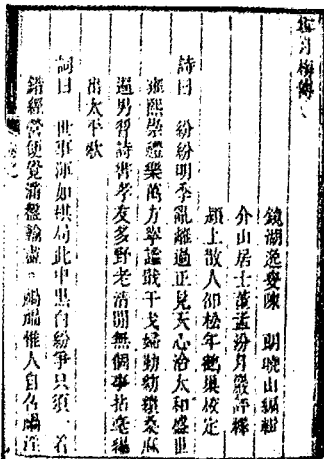 雪月梅傳
鏡湖逸叟陳 朗曉山編輯
介山居士董孟汾月巖評釋
潁上散人邵松年鶴巢校定
詩曰 紛紛明季亂離過正見天心洽太和盛世
雍熙崇禮樂萬方寧謐戢干戈婦勤紡績桑麻
遍男習詩書孝友多野老清閒無個事拈毫編
出太平歌
詞曰 世事渾如棋局此中黑白紛爭只須一着
錯經營便覺滿盤輸盡 禍福惟人自召禍淫